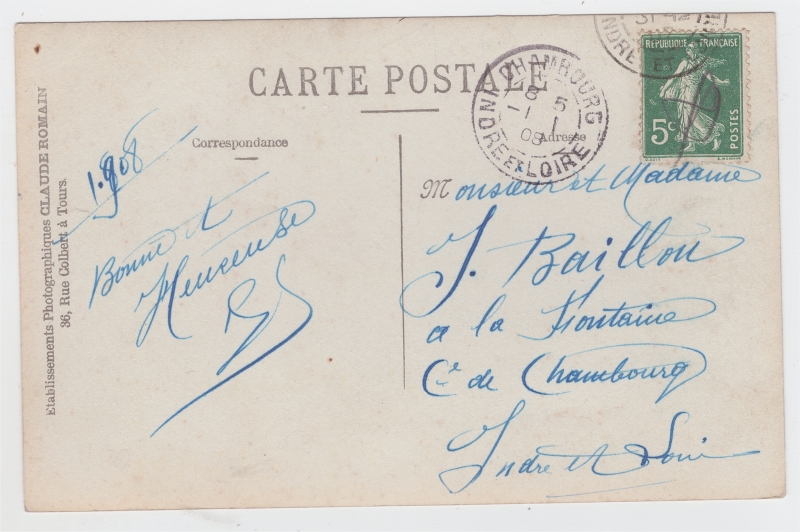 CARTE POSTALE
Correspondance
Adresse
Etablissements Photographiques CLAUDE ROMAIN
36, Rue Colbert à Tours.
1.908
Bonne et
Heureuse
Monsieur et Madame
J. Baillou
a la Fontaine
Cne de Chambourg
Indre et Loire
CHAMBOURG
8 5
1 1
08
INDRE ET LOIRE
31 12
INDRE ET
REPUBLIQUE FRANÇAISE
5c
POSTES